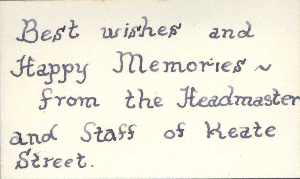 Best wishes and
Happy Memories ~
from the Headmaster
and Staff of Keate
Street.